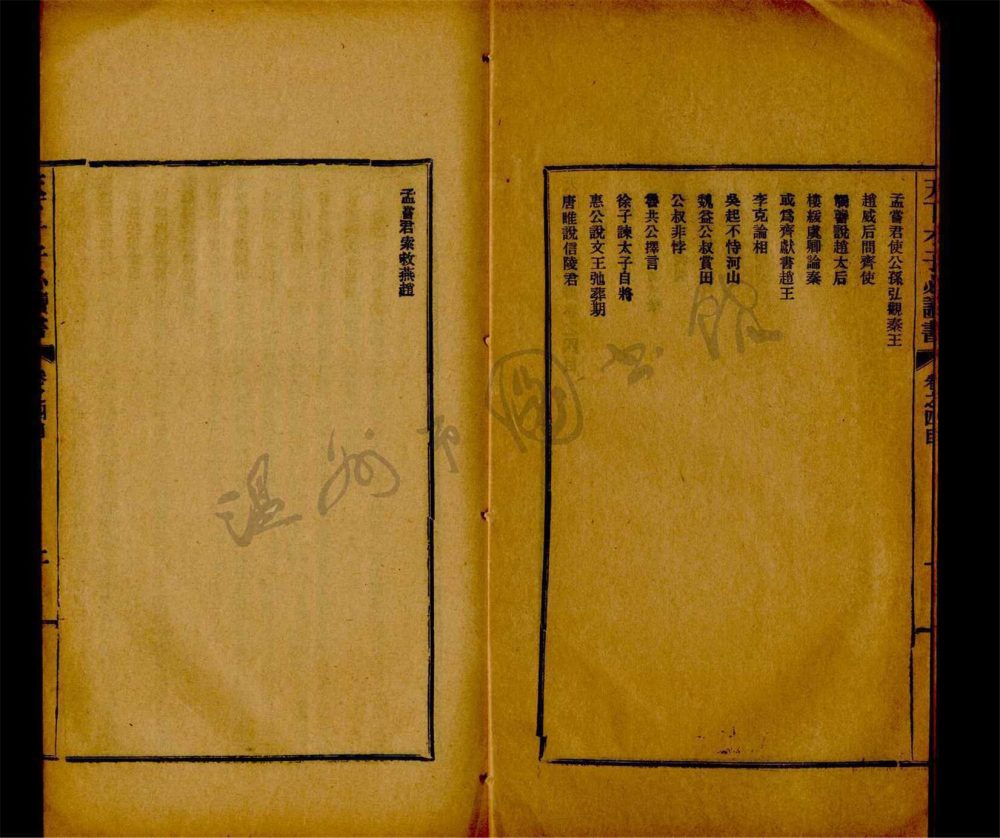 孟嘗君使公孫弘觀秦王
趙威后問齊使
觸讋說趙太后
樓緩虞卿論秦
或爲齊獻書趙王
李克論相
吳起不恃河山
魏益公叔賞田
公叔非悖
魯共公擇言
徐子諫太子自將
惠公說文王弛葬期
唐雎說信陵君
孟嘗君索救燕趙
才子必讀書
卷之四目
一
讀書
二
溫州市圖書館